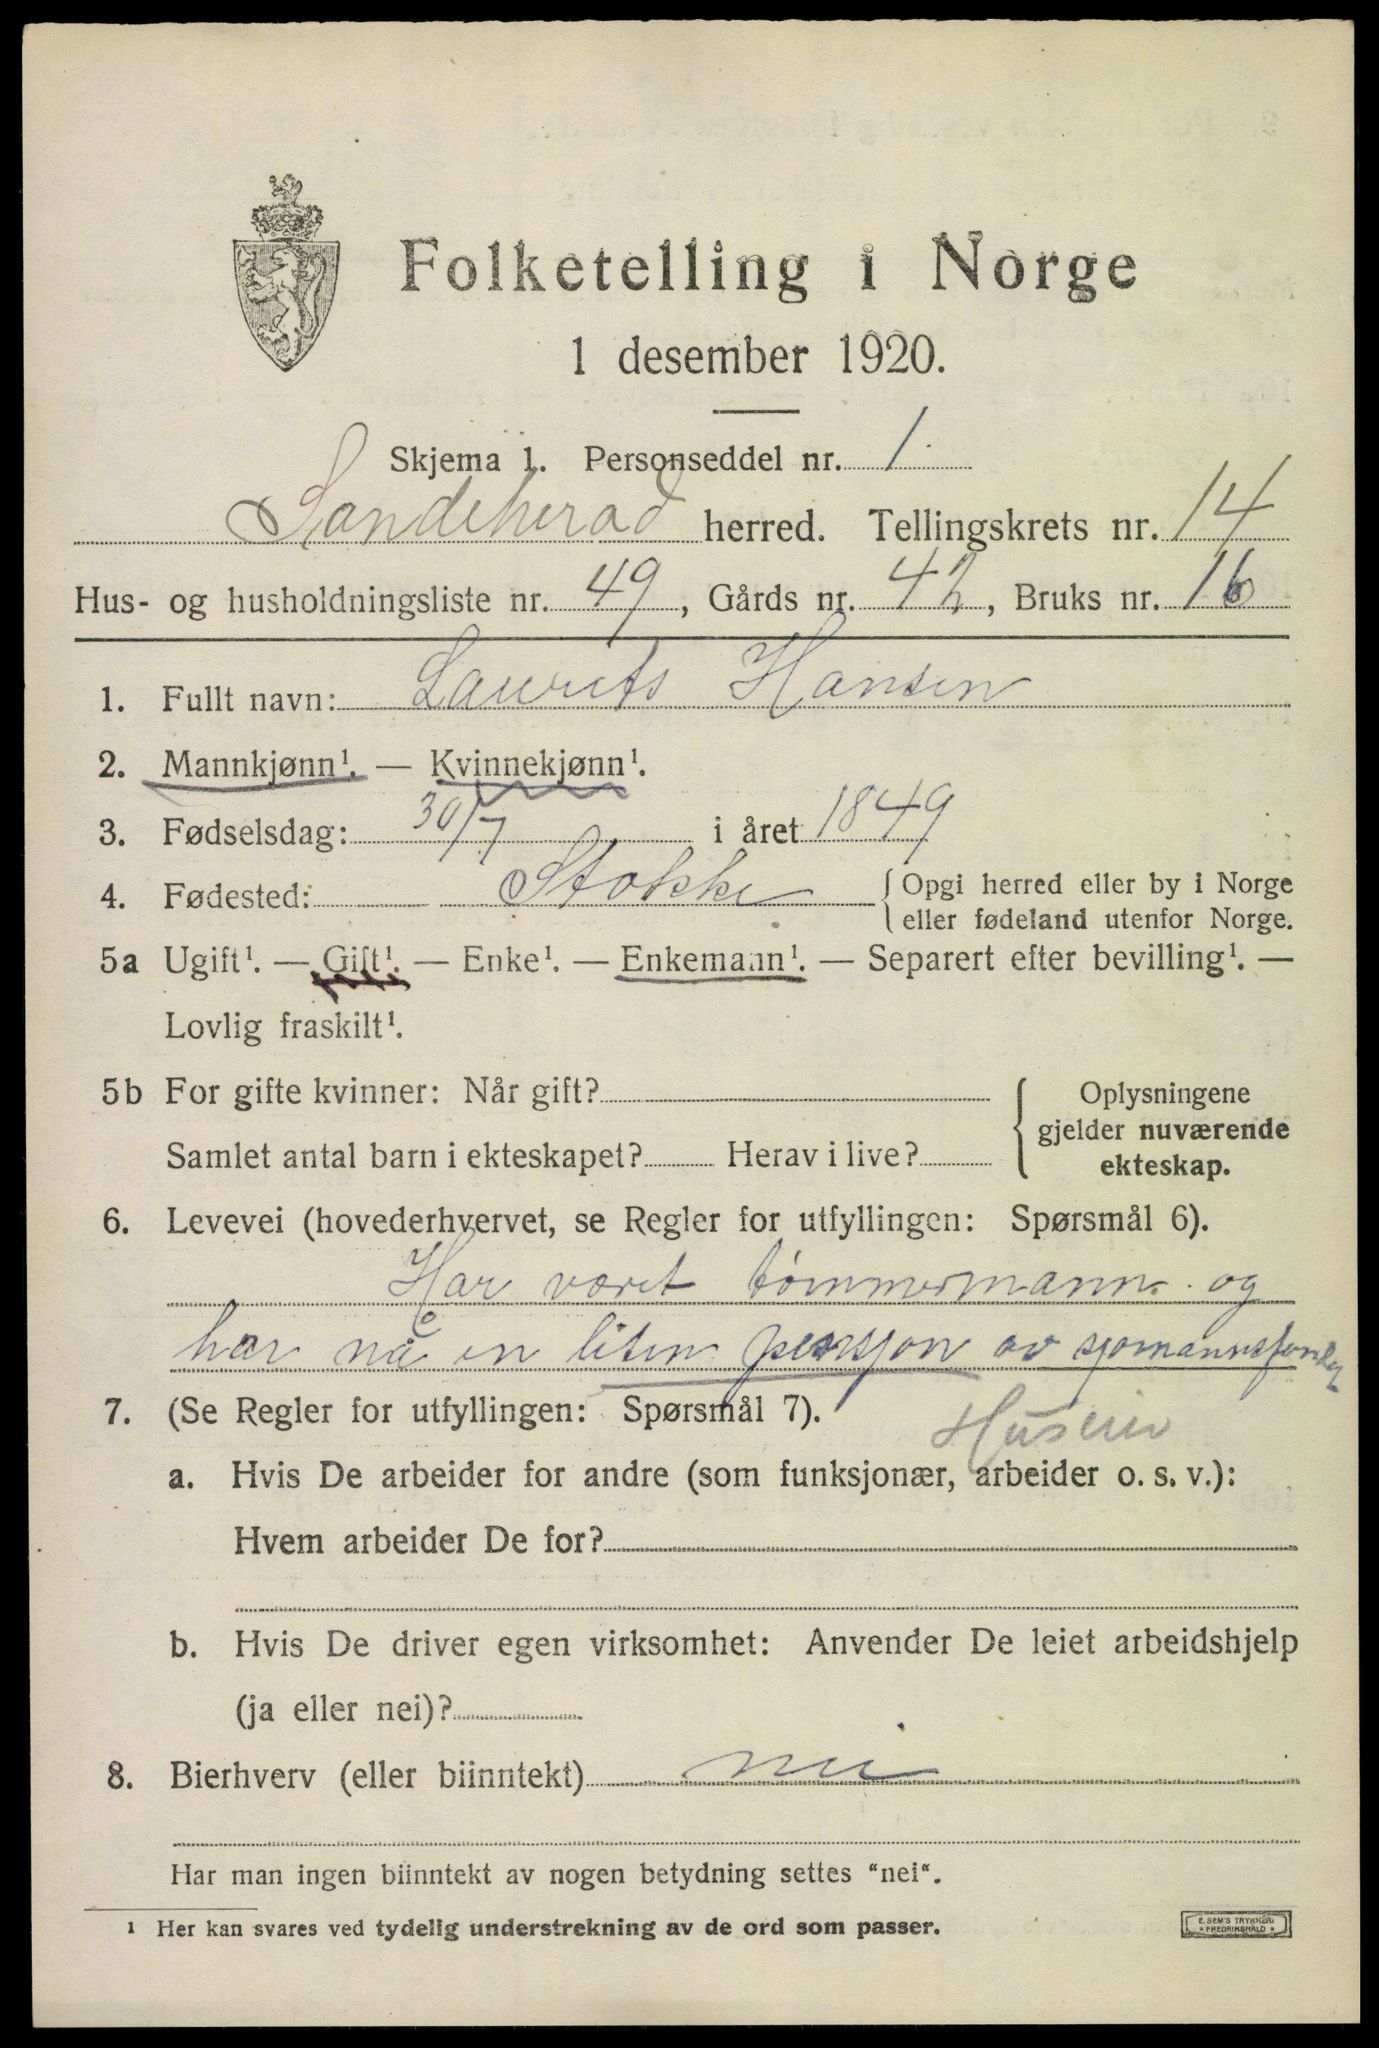 Folketelling i Norge
1 desember 1920.
Skjema 1. Personseddel nr. 1.
Sandeherad herred. Tellingskrets nr. 14
Hus- og husholdningsliste nr. 49, Gårds nr. 42, Bruks nr. 16
1. Fullt navn: Laurits Hansen
2. Mannkjønn¹. — Kvinnekjønn¹.
3. Fødselsdag: 30/7 i året 1849
4. Fødested: Stokke { Opgi herred eller by i Norge
eller fødeland utenfor Norge.
5a Ugift¹. — Gift¹. — Enke¹. — Enkemann¹. — Separert efter bevilling¹. —
Lovlig fraskilt¹.
5b For gifte kvinner: Når gift?
Samlet antal barn i ekteskapet? Herav i live?
{ Oplysningene
gjelder nuværende
ekteskap.
6. Levevei (hovederhvervet, se Regler for utfyllingen: Spørsmål 6).
Har været tømmermann og
har nå en liten pensjon av
7. (Se Regler for utfyllingen: Spørsmål 7).
Huseier
a. Hvis De arbeider for andre (som funksjonær, arbeider o. s. v.):
Hvem arbeider De for?
b. Hvis De driver egen virksomhet: Anvender De leiet arbeidshjelp
(ja eller nei)?
8. Bierhverv (eller biinntekt) nei
Har man ingen biinntekt av nogen betydning settes "nei".
¹ Her kan svares ved tydelig understrekning av de ord som passer.
E. SEM'S TRYKKERI
* FREDRIKSHALD *